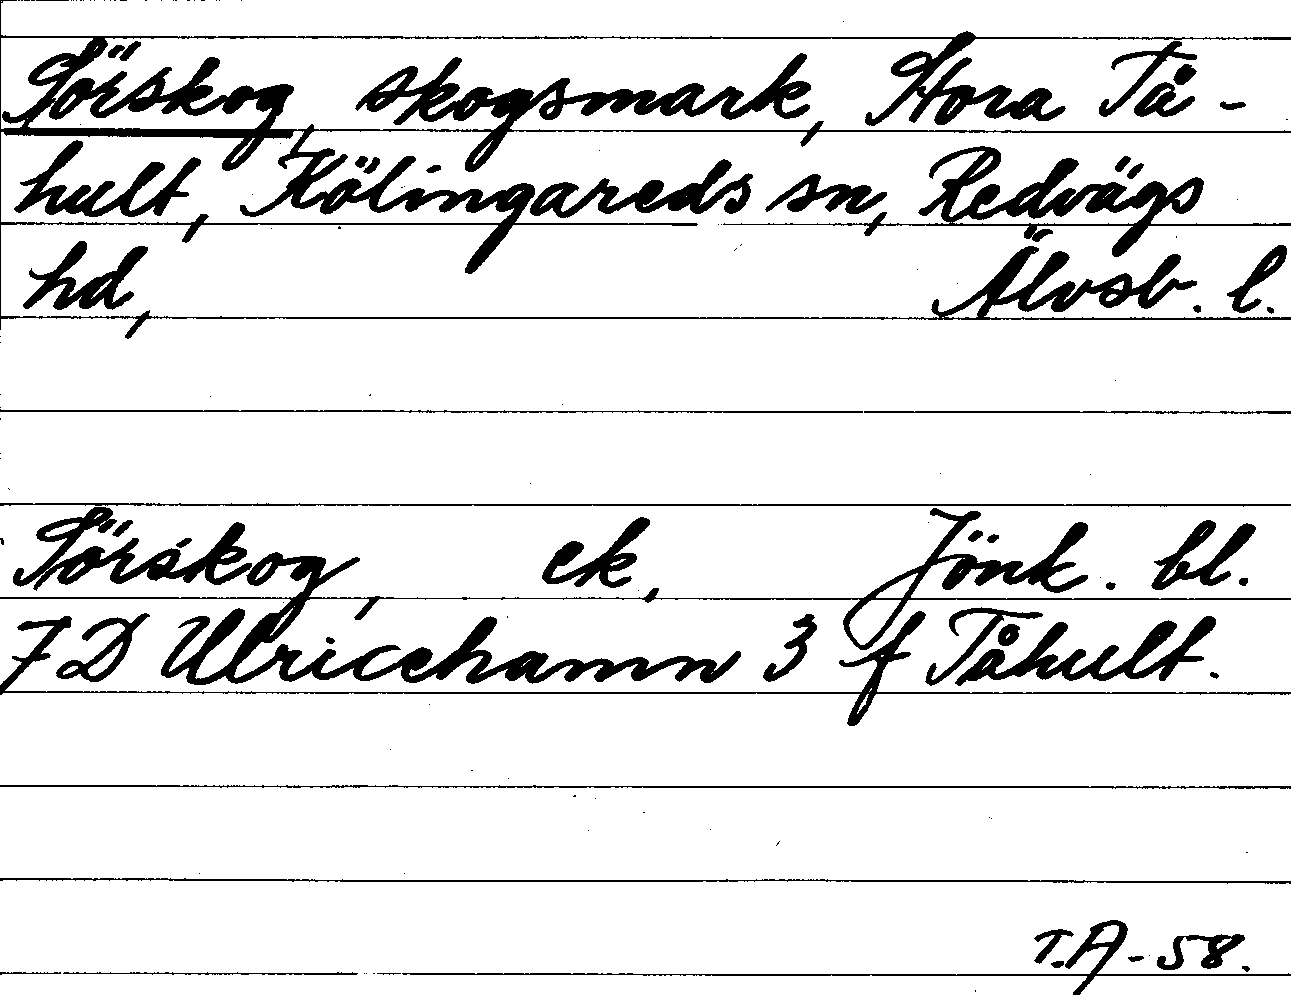 Sörskog, skogsmark, Stora Tå-
hult, Kölingareds sn, Redvägs
hd, Älvsb. l.
Sörskog, ek, Jönk. bl.
7D Ulricehamn 3 f Tåhult.
T.A-58.